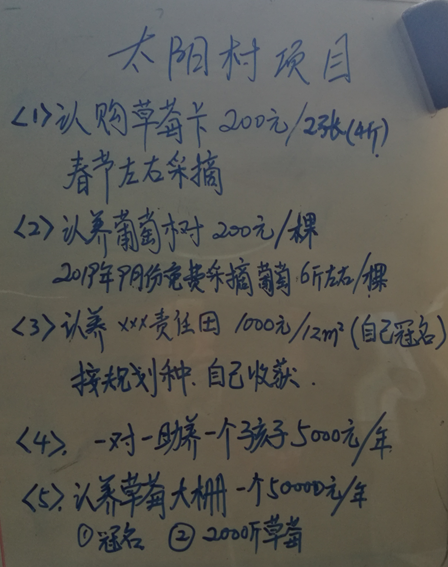 太阳村项目
<1>认购草莓卡 200元/2张(4斤)
春节左右采摘
<2>认养葡萄树 200元/棵
2019年9月份免费采摘葡萄 6斤左右/棵
<3>认养 xxx责任田 1000元/12m²(自己冠名)
按规划种.自己收获.
<4>. 一对一助养一个孩子5000元/年
<5>.认养草莓大棚一个50000元/年
①冠名 ②2000斤草莓